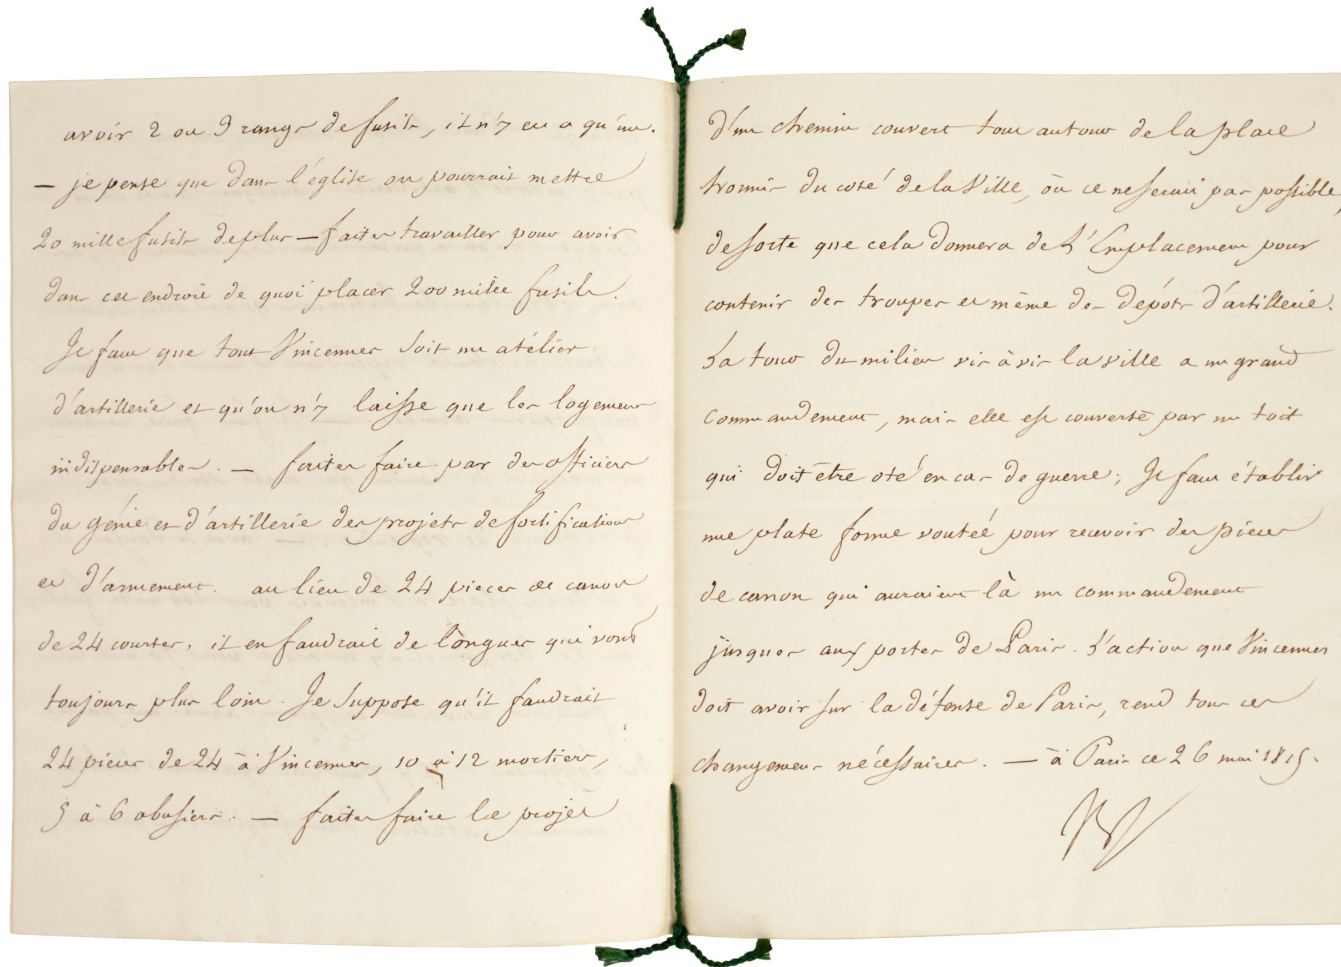 avoir 2 ou 3 rangs de fusils, il n'y en a qu'un.
— je pense que dans l'église on pourrait mettre
20 mille fusils de plus — faites travailler pour avoir
dans cet endroit de quoi placer 200 mille fusils.
Il faut que tout Vincennes soit un atélier
d'artillerie et qu'on n'y laisse que les logemens
indispensables. — faites faire par des officiers
du génie et d'artillerie des projets de fortifications
et d'armement. au lieu de 24 pieces de canon
de 24 courtes, il en faudrait de longues qui vont
toujours plus loin. Je suppose qu'il faudrait
24 pièces de 24 à Vincennes, 10 à 12 mortiers,
5 à 6 obusiers. — faites faire le projet
d'un chemin couvert tout autour de la place
hormis du coté de la Ville, où ce ne serait pas possible,
de sorte que cela donnera de l'Emplacement pour
contenir des troupes et même des dépôts d'artillerie.
La tour du milieu vis à vis la ville a un grand
commandement, mais elle est couverte par un toit
qui doit être oté en cas de guerre; Il faut établir
une plate forme voutée pour recevoir des pièces
de canon qui auraient là un commandement
jusques aux portes de Paris. L'action que Vincennes
doit avoir sur la défense de Paris, rend tous ces
changemens nécessaires. — à Paris ce 26 mai 1815.